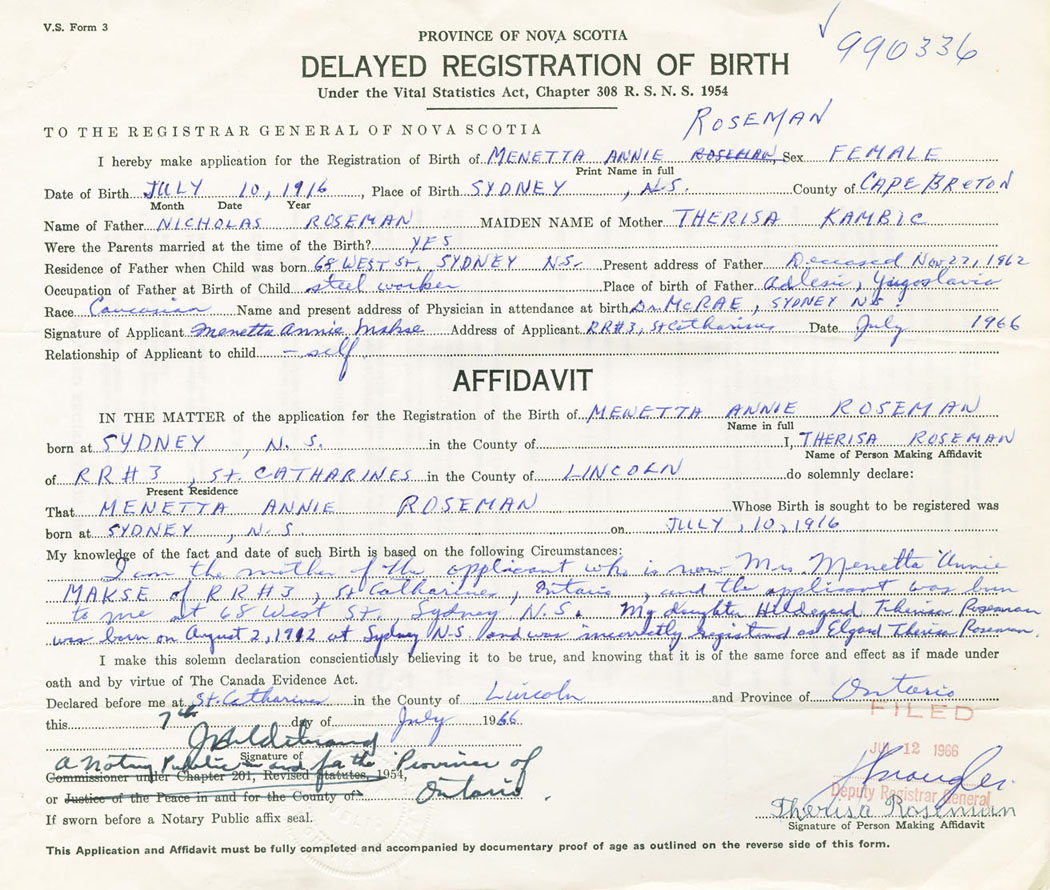 V.S. Form 3
990336
PROVINCE OF NOVA SCOTIA
DELAYED REGISTRATION OF BIRTH
Under the Vital Statistics Act, Chapter 308 R. S. N. S. 1954
ROSEMAN
TO THE REGISTRAR GENERAL OF NOVA SCOTIA
I hereby make application for the Registration of Birth of MENETTA ANNIE ROSEMAN Sex FEMALE
Print Name in full
Date of Birth JULY 10, 1916, Place of Birth SYDNEY, N.S. County of CAPE BRETON
Month Date Year
Name of Father NICHOLAS ROSEMAN MAIDEN NAME of Mother THERISA KAMBIC
Were the Parents married at the time of the Birth? YES
Residence of Father when Child was born 68 WEST ST. SYDNEY N.S. Present address of Father Deceased Nov 27, 1962
Occupation of Father at Birth of Child steel worker Place of birth of Father Adlesic, Yugoslavia
Race Caucasian Name and present address of Physician in attendance at birth Dr McRAE, SYDNEY N.S.
Signature of Applicant Menetta Annie Makse Address of Applicant RR#3, St Catharines Date July 1966
Relationship of Applicant to child - self
AFFIDAVIT
IN THE MATTER of the application for the Registration of the Birth of MENETTA ANNIE ROSEMAN
Name in full
born at SYDNEY, N.S. in the County of I, THERISA ROSEMAN
Name of Person Making Affidavit
of RR#3, ST. CATHARINES in the County of LINCOLN do solemnly declare:
Present Residence
That MENETTA ANNIE ROSEMAN Whose Birth is sought to be registered was
born at SYDNEY, N.S on JULY, 10, 1916
My knowledge of the fact and date of such Birth is based on the following Circumstances:
I am the mother of the applicant who is now Mrs Menetta Annie
MAKSE of RR#3, St Catharines, Ontario, and the applicant was born
to me at 68 West St. Sydney N.S. My daughter Hildegard Theresa Roseman
was born on August 2, 1912 at Sydney N.S. and was incorrectly registered as Elgard Therisa Roseman.
I make this solemn declaration conscientiously believing it to be true, and knowing that it is of the same force and effect as if made under
oath and by virtue of The Canada Evidence Act.
Declared before me at St. Catharines in the County of Lincoln and Province of Ontario
this 7th day of July 1966
FILED
JUL 12 1966
J Hildebrand
Signature of
A Notary Public in and for the Province of
Commissioner under Chapter 201, Revised Statutes, 1954,
or Justice of the Peace in and for the County of Ontario.
Deputy Registrar General
Therisa Roseman
If sworn before a Notary Public affix seal.
Signature of Person Making Affidavit
This Application and Affidavit must be fully completed and accompanied by documentary proof of age as outlined on the reverse side of this form.